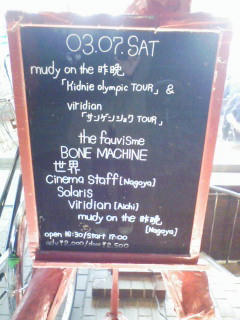 03.07. SAT
mudy on the 昨晩
「Kidnie olympic TOUR」 &
viridian
「サンゲンショク TOUR」
the fauviSme
BONE MACHINE
世界
cinema staff [Nagoya]
Solaris
viridian [Aichi]
mudy on the 昨晩
[Nagoya]
open 16:30/start 17:00
adv ¥2,000/door ¥2,500